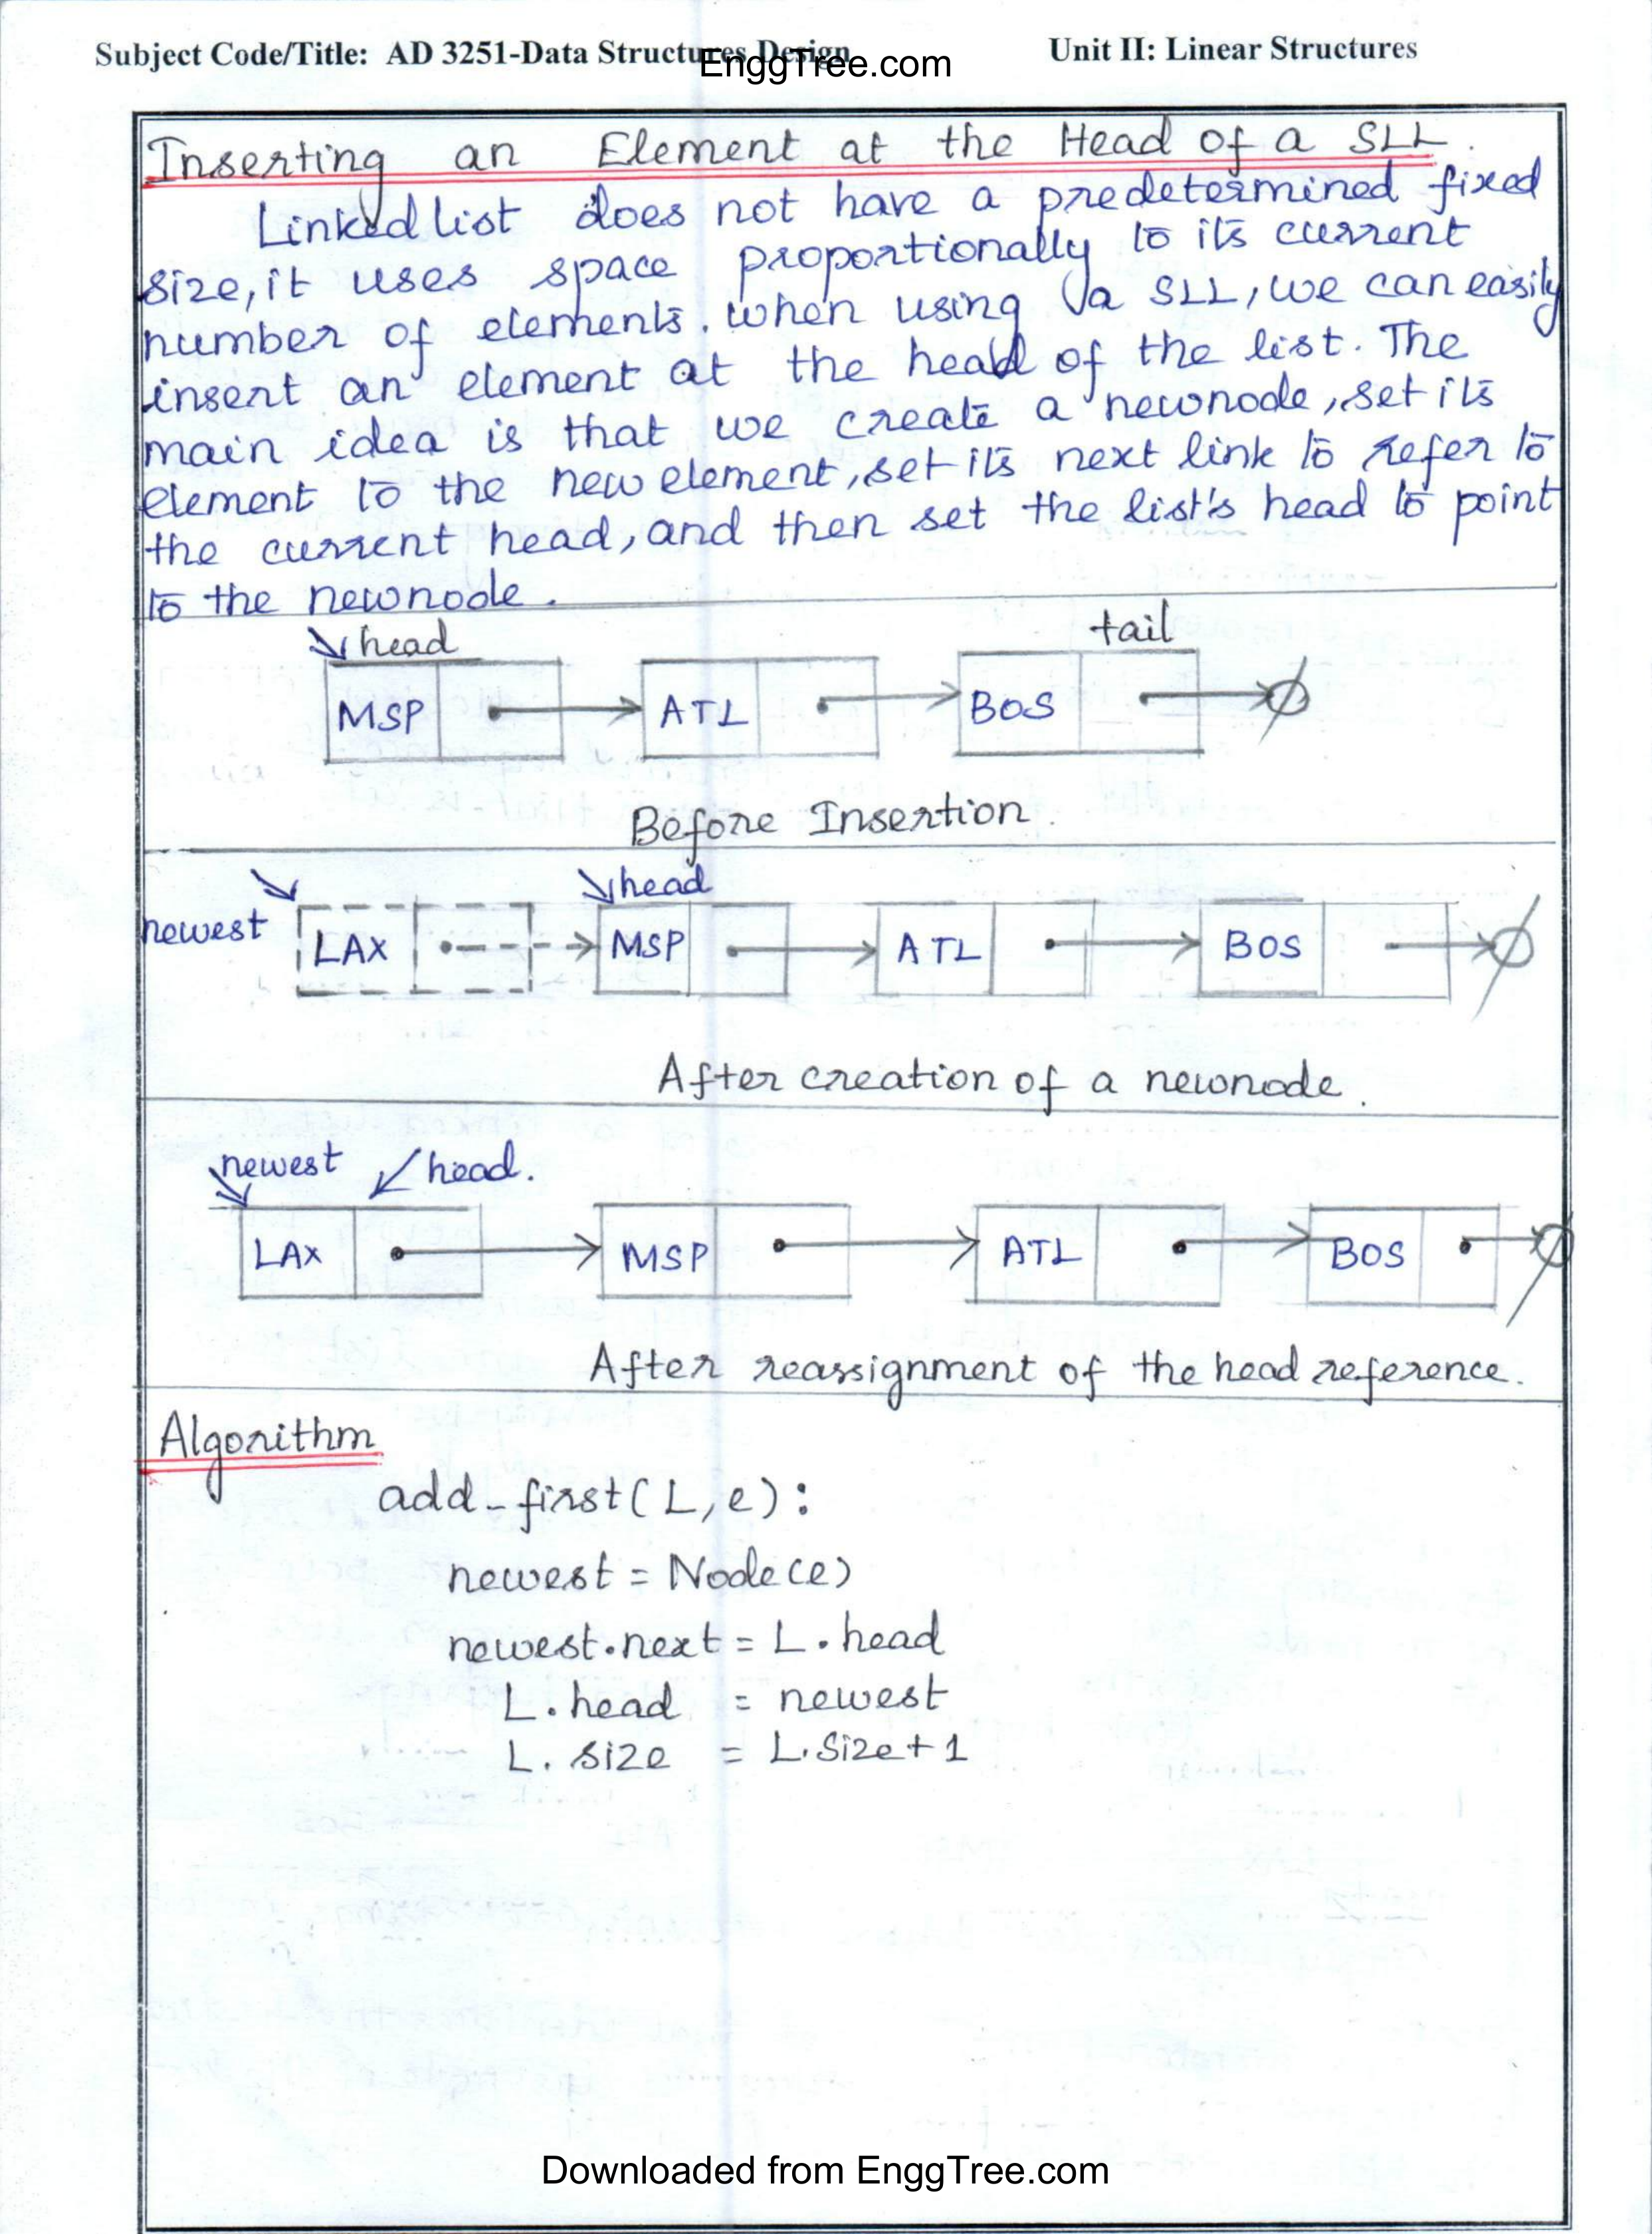 Subject Code/Title: AD 3251-Data Structures Design Unit II: Linear Structures
EnggTree.com
Inserting an Element at the Head of a SLL.
Linked list does not have a predetermined fixed
size, it uses space proportionally to its current
number of elements. when using a SLL, we can easily
insert an element at the head of the list. The
main idea is that we create a newnode, set its
element to the new element, set its next link to refer to
the current head, and then set the list's head to point
to the newnode.
head tail
MSP ATL BOS
Before Insertion.
head
newest LAX MSP ATL BOS
After creation of a newnode.
newest head.
LAX MSP ATL BOS
After reassignment of the head reference.
Algorithm
add_first(L,e):
newest = Node(e)
newest.next = L.head
L.head = newest
L.size = L.size+1
Downloaded from EnggTree.com